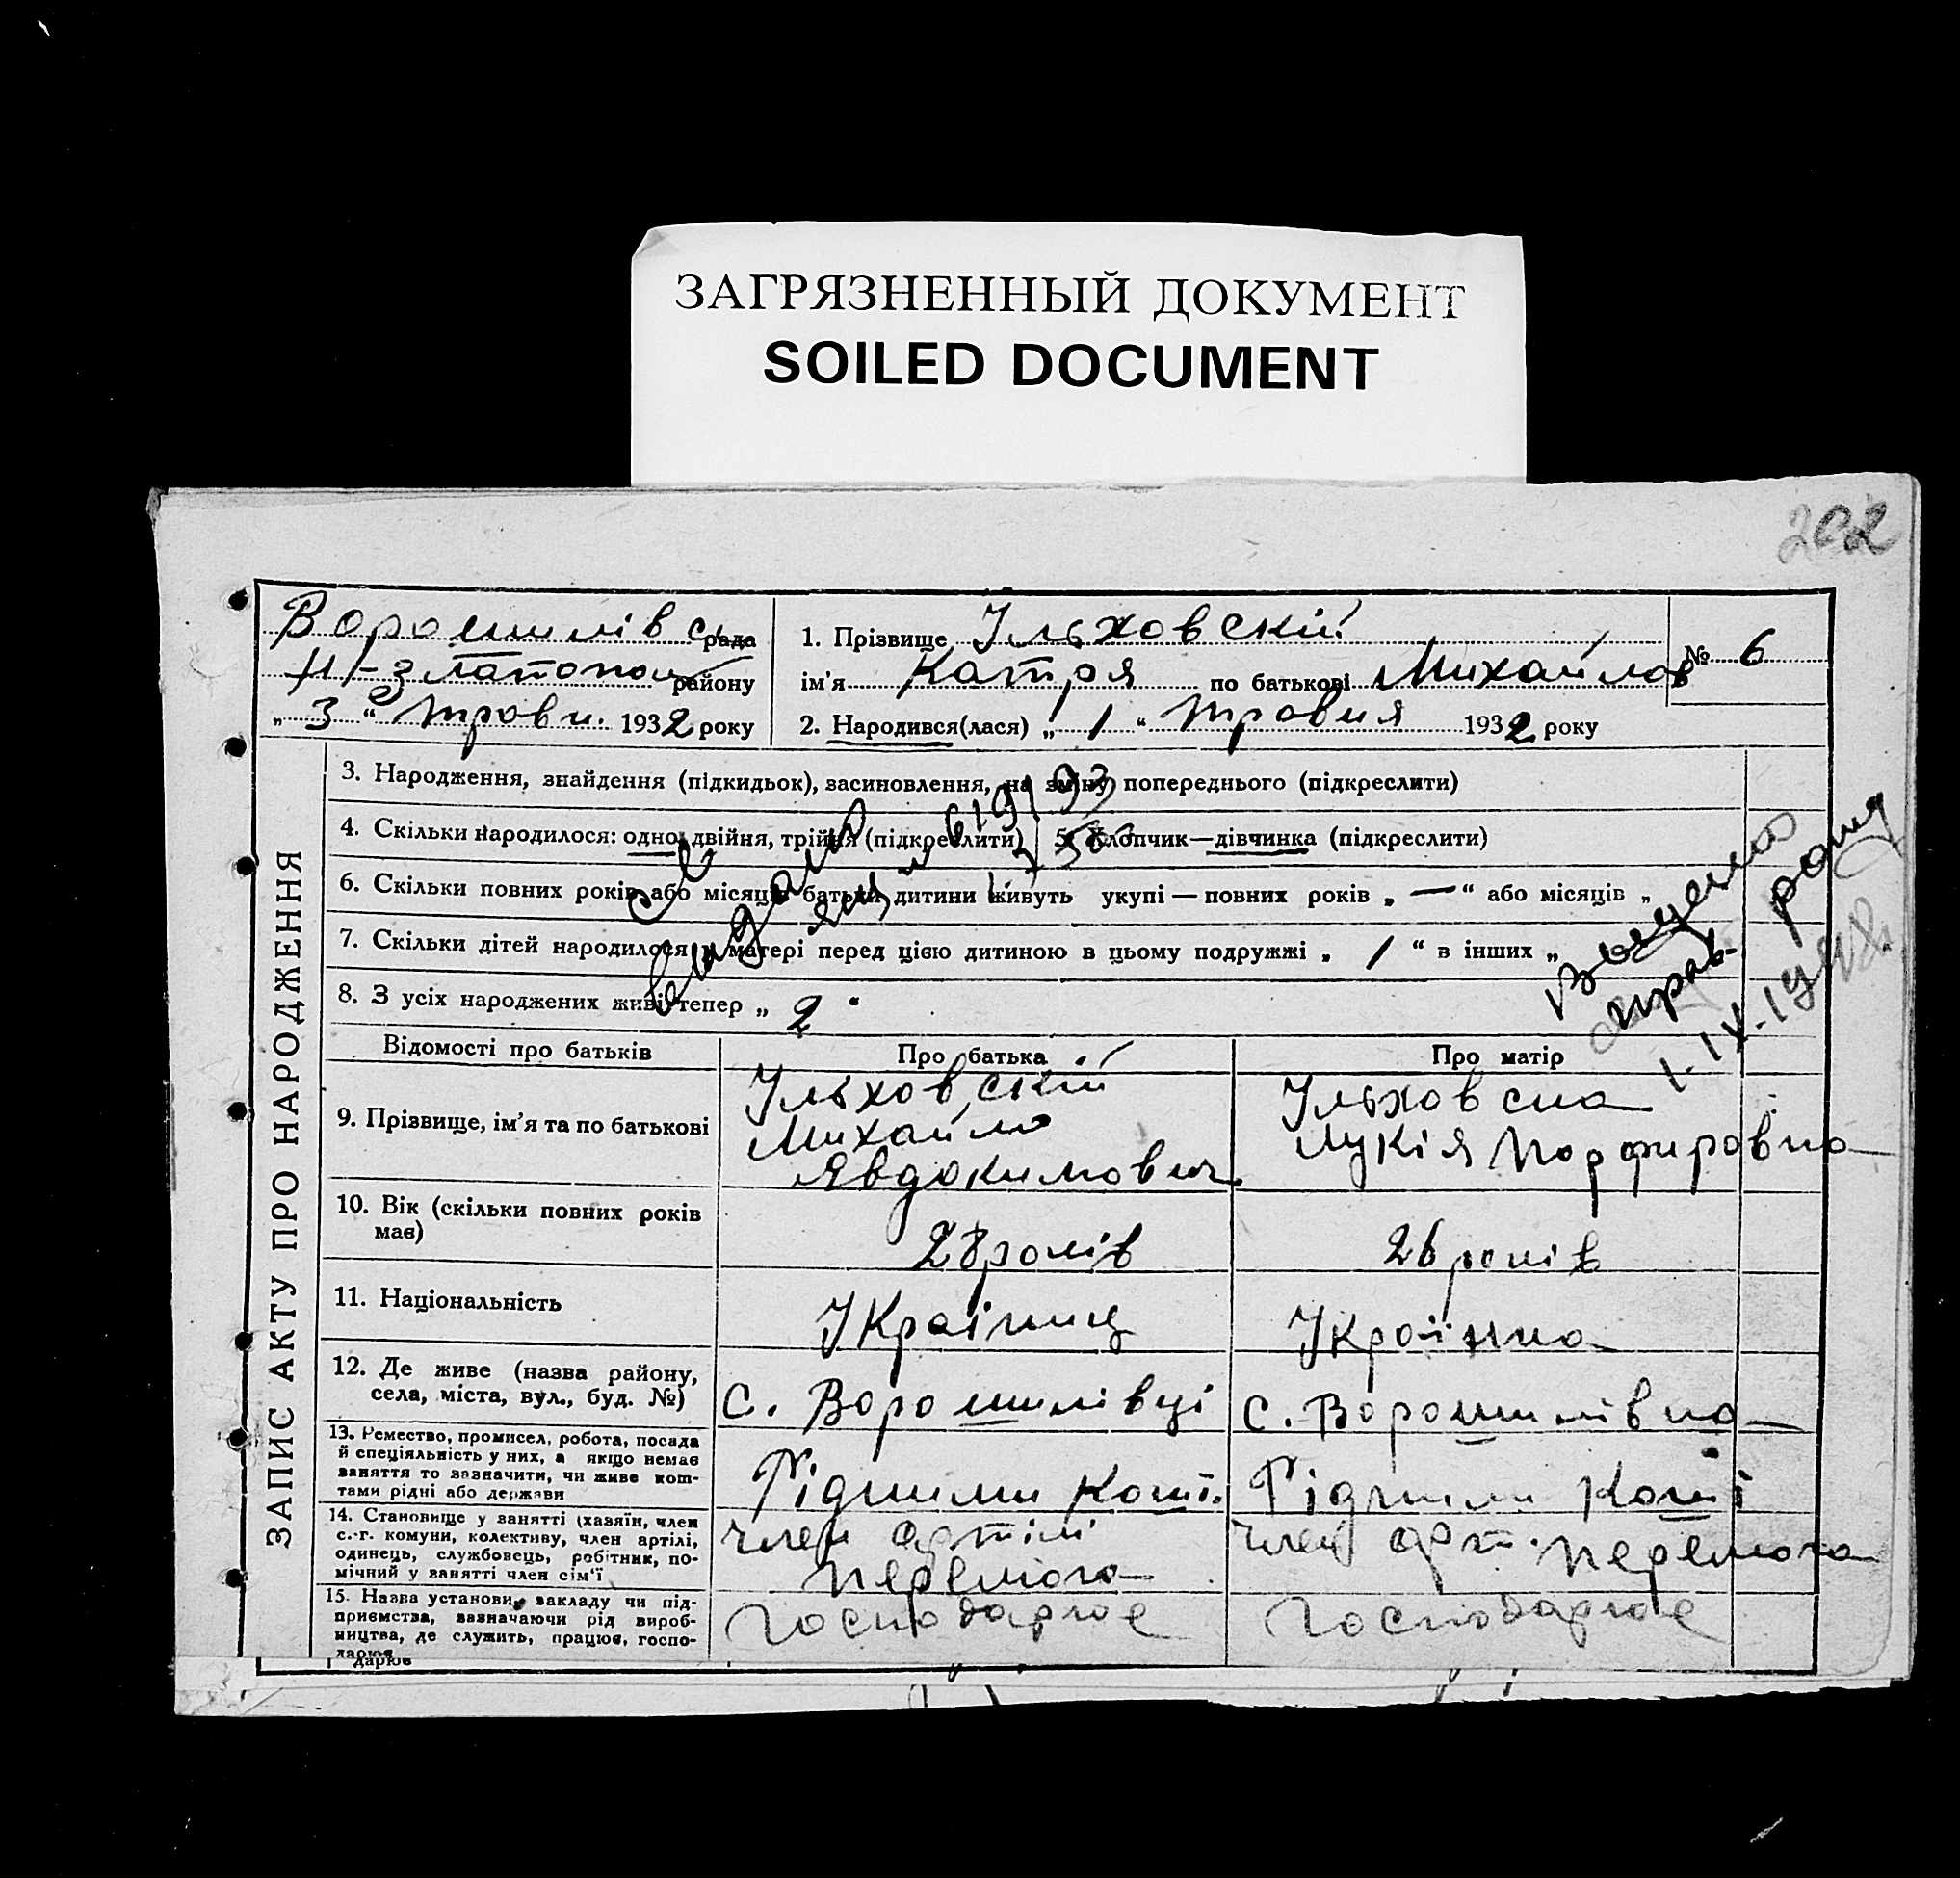 ЗАГРЯЗНЕННЫЙ ДОКУМЕНТ
SOILED DOCUMENT
202
ЗАПИС АКТУ ПРО НАРОДЖЕННЯ
Ворошилівсь рада
Н-златопол району
„ 3 “ травн. 1932 року
1. Прізвище Ільховскій
ім'я Катря по батькові Михайлов
№ 6
2. Народився(лася) „ 1 “ травня 1932 року
3. Народження, знайдення (підкидьок), засиновлення, на зміну попереднього (підкреслити)
4. Скільки народилося: одно, двійня, трійня (підкреслити) 5. Хлопчик—дівчинка (підкреслити)
6. Скільки повних років або місяців батьки дитини живуть укупі — повних років „ — “ або місяців „
7. Скільки дітей народилося у матері перед цією дитиною в цьому подружжі „ 1 “ в інших „
8. З усіх народжених живі тепер „ 2 “
1-IX-1948.
Відомості про батьків
Про батька
Про матір
9. Прізвище, ім'я та по батькові
Ільховский
Михайло
Явдокимович
Ільховска
Лукія Порфировна
10. Вік (скільки повних років
має)
28 років
26 років
11. Національність
Українец
Українка
12. Де живе (назва району,
села, міста, вул., буд. №)
с. Ворошилівці
с. Ворошилівка
13. Ремество, промисел, робота, посада
й спеціяльність у них, а якщо немає
заняття то зазначити, чи живе кош-
тами рідні або держави
Рідними кошт.
Рідними кошті
14. Становище у занятті (хазяїн, член
с.-г. комуни, колективу, член артілі,
одинець, службовець, робітник, по-
мічний у занятті член сім'ї
член артілі
перемога
член арт. перемога
15. Назва установи, закладу чи під-
приємства, зазначаючи рід вироб-
ництва, де служить, працює, госпо-
дарює
дарює
господарює
господарює